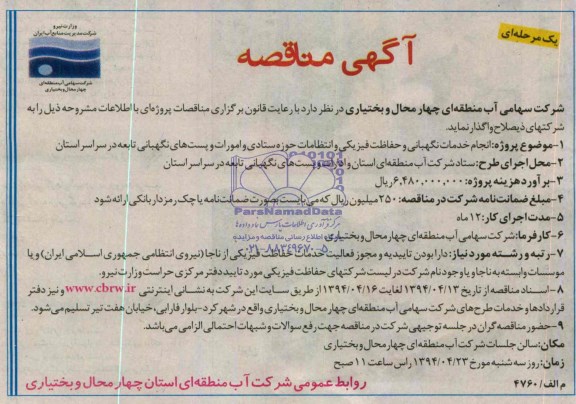 وزارت نیرو
شرکت مدیریت منابع آب ایران
شرکت سهامی آب منطقه‌ای
چهارمحال و بختیاری
یک مرحله‌ای
آگهی مناقصه
شرکت سهامی آب منطقه‌ای چهارمحال و بختیاری در نظر دارد با رعایت قانون برگزاری مناقصات پروژه‌ای با اطلاعات مشروحه ذیل را به
شرکتهای ذیصلاح واگذار نماید.
۱-موضوع پروژه: انجام خدمات نگهبانی و حفاظت فیزیکی و انتظامات حوزه ستادی و امورات و پست‌های نگهبانی تابعه در سراسر استان
۲-محل اجرای طرح: ستاد شرکت آب منطقه‌ای استان و ادارات و پست‌های نگهبانی تابعه در سراسر استان
۳-برآورد هزینه پروژه: ۶,۴۸۰,۰۰۰,۰۰۰ ریال
۴-مبلغ ضمانت‌نامه شرکت در مناقصه: ۲۵۰ میلیون ریال که می‌بایست بصورت ضمانت‌نامه یا چک رمزدار بانکی ارائه شود
۵-مدت اجرای کار: ۱۲ ماه
۶-کارفرما: شرکت سهامی آب منطقه‌ای چهارمحال و بختیاری
۷-رتبه و رشته مورد نیاز: دارا بودن تاییدیه و مجوز فعالیت خدمات حفاظت فیزیکی از ناجا (نیروی انتظامی جمهوری اسلامی ایران) و یا
موسسات وابسته به ناجا و یا وجود نام شرکت در لیست شرکتهای حفاظت فیزیکی مورد تایید دفتر مرکزی حراست وزارت نیرو.
۸-اسناد مناقصه از تاریخ ۱۳۹۴/۰۴/۱۳ لغایت ۱۳۹۴/۰۴/۱۶ از طریق سایت این شرکت به نشانی اینترنتی www.cbrw.ir و نیز دفتر
قراردادها و خدمات طرح‌های شرکت سهامی آب منطقه‌ای چهارمحال و بختیاری واقع در شهرکرد-بلوار فارابی، خیابان هفت تیر تسلیم می‌شود.
۹-حضور مناقصه گران در جلسه توجیهی شرکت در مناقصه جهت رفع سوالات و شبهات احتمالی الزامی می‌باشد.
مکان: سالن جلسات شرکت آب منطقه‌ای چهارمحال و بختیاری
زمان: روز سه شنبه مورخ ۱۳۹۴/۰۴/۲۳ راس ساعت ۱۱ صبح
م الف/ ۴۷۶۰
روابط عمومی شرکت آب منطقه‌ای استان چهارمحال و بختیاری
ParsNamadData
۰۲۱-۸۸۳۴۹۶۷۰-۵